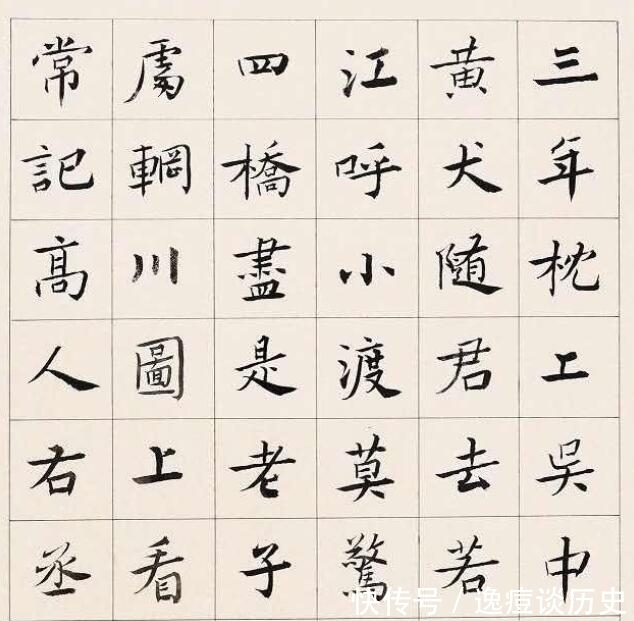 三年枕上吳中
黄犬随君去若
江呼小渡莫驚
四橋盡是老子
處輞川圖上看
常記高人右丞
快传号 / 逸痘谈历史